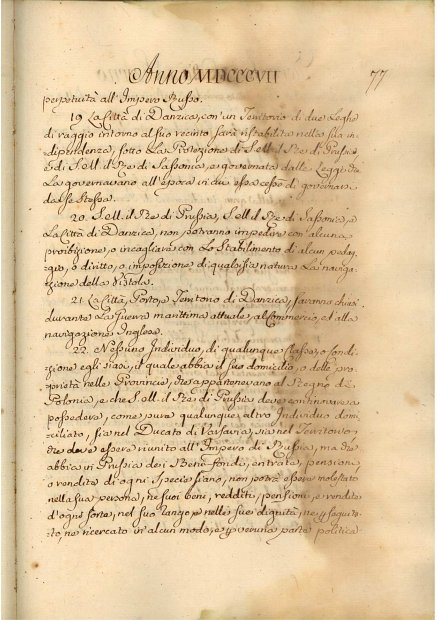 Anno MDCCCVII 77
perpetuità all'Impero Russo.
19. La Città di Danzica, con un Territorio di due Leghe
di raggio intorno al suo recinto sarà ristabilita nella sua in
dipendenza, sotto La Protezione di S. M. il Re di Prussia,
e di S. M. il Re di Sassonia, e governata dalle Leggi, che
La governavano all'epoca in cui essa cessò di governar
da se stessa.
20. S. M. il Re di Prussia, S. M. il Re di Sassonia, e
La Città di Danzica, non potranno impedire con alcuna
proibizione, o incagliare con Lo Stabilimento di alcun pedag
gio, o diritto, o imposizione di qualsisia natura La naviga
zione della Vistola.
21. La Città, Porto, e Territorio di Danzica, saranno chiusi
durante La Guerra marittima attuale, al Commercio, ed alla
navigazione Inglese.
22. Nessuno Individuo, di qualunque classe, o condi
zione egli siasi, il quale abbia il suo domicilio, o delle pro
prietà nelle Provincie, che appartenevano al Regno di
Polonia, e che S. M. il Re di Prussia deve continuare a
possedere, come pure qualunque altro Individuo domi
ciliato, sia nel Ducato di Varsavia, sia nel Territorio
che deve essere riunito all'Impero di Russia, ma che
abbia in Prussia dei Beni-fondi, entrate, pensioni
o rendite di ogni specie siano, non potrà essere molestato
nella sua persona, ne suoi beni, redditi, pensioni, e rendite
d'ogni sorte, nel suo rango, e nelle sue dignità, ne
ne ricercato in alcun modo, e veruna parte politica